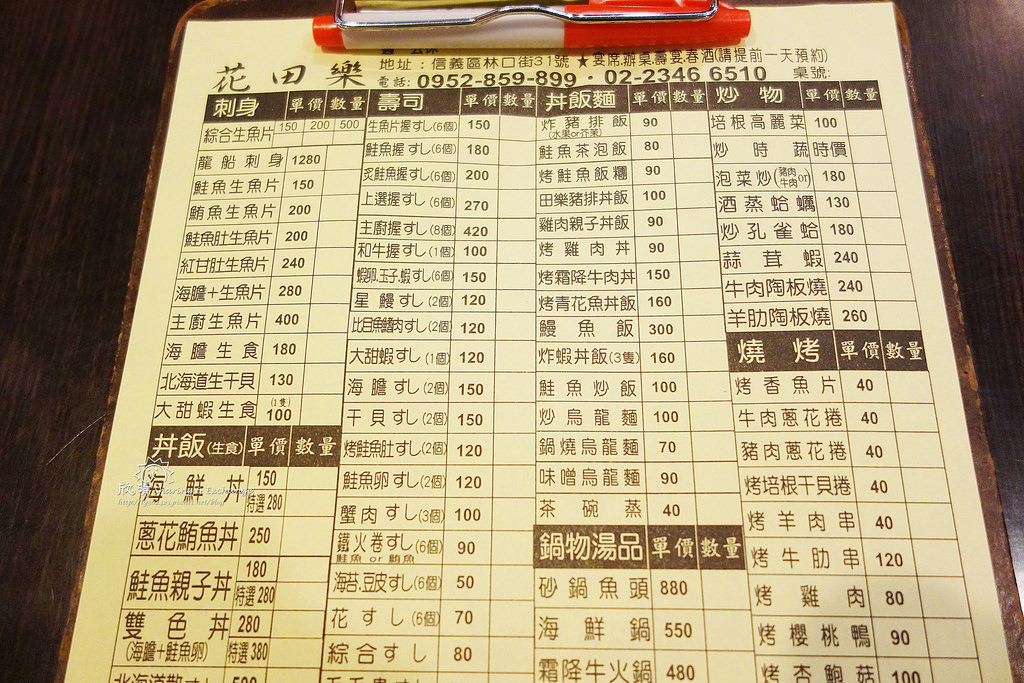 地址：信義區林口街31號 ★宴席.辦桌.壽宴.春酒(請提前一天預約)
花田樂 電話：0952-859-899・02-2346 6510 桌號:
刺身 單價 數量
綜合生魚片 150 200 500
龍船刺身 1280
鮭魚生魚片 150
鮪魚生魚片 200
鮭魚肚生魚片 200
紅甘肚生魚片 240
海膽＋生魚片 280
主廚生魚片 400
海膽生食 180
北海道生干貝 130
大甜蝦生食 (1隻) 100
丼飯(生食) 單價 數量
海鮮丼 150 特選280
蔥花鮪魚丼 250
鮭魚親子丼 180 特選280
雙色丼 280
(海膽＋鮭魚卵) 特選380
壽司 單價 數量
生魚片握すし(6個) 150
鮭魚握すし(6個) 180
炙鮭魚握すし(6個) 200
上選握すし(6個) 270
主廚握すし(8個) 420
和牛握すし(1個) 100
蝦卵.玉子.蝦すし(6個) 150
星鰻すし(2個) 120
比目魚鰭肉すし(2個) 120
大甜蝦すし(1個) 120
海膽すし(2個) 150
干貝すし(2個) 150
烤鮭魚肚すし(2個) 120
鮭魚卵すし(2個) 120
蟹肉すし(3個) 100
鐵火卷すし(6個) 90
鮭魚 or 鮪魚
海苔.豆皮すし(6個) 50
花すし(6個) 70
綜合すし 80
丼飯麵 單價 數量
炸豬排飯 90
(水果or芥茉)
鮭魚茶泡飯 80
烤鮭魚飯糰 90
田樂豬排丼飯 100
雞肉親子丼飯 90
烤雞肉丼 90
烤霜降牛肉丼 150
烤青花魚丼飯 160
鰻魚飯 300
炸蝦丼飯(3隻) 160
鮭魚炒飯 100
炒烏龍麵 100
鍋燒烏龍麵 70
味噌烏龍麵 90
茶碗蒸 40
鍋物湯品 單價 數量
砂鍋魚頭 880
海鮮鍋 550
霜降牛火鍋 480
炒物 單價 數量
培根高麗菜 100
炒時蔬 時價
泡菜炒(豬肉or牛肉) 180
酒蒸蛤蠣 130
炒孔雀蛤 180
蒜茸蝦 240
牛肉陶板燒 240
羊肋陶板燒 260
燒烤 單價 數量
烤香魚片 40
牛肉蔥花捲 40
豬肉蔥花捲 40
烤培根干貝捲 40
烤羊肉串 40
烤牛肋串 120
烤雞肉 80
烤櫻桃鴨 90
烤杏鮑菇 100